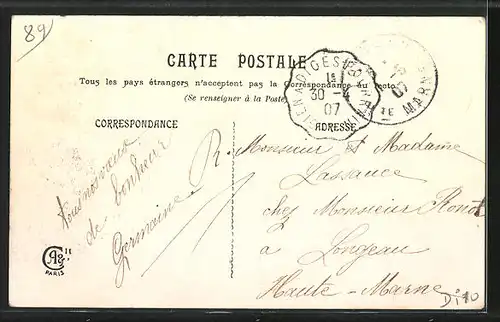 89
CARTE POSTALE
Tous les pays étrangers n'acceptent pas la Correspondance au recto
(Se renseigner à la Poste)
30 -4
07
CORRESPONDANCE
ADRESSE
Tous nos vœux
de bonheur
Germaine R.
Monsieur et Madame
Lassauce
chez Monsieur
à Longeau
Haute-Marne
PARIS